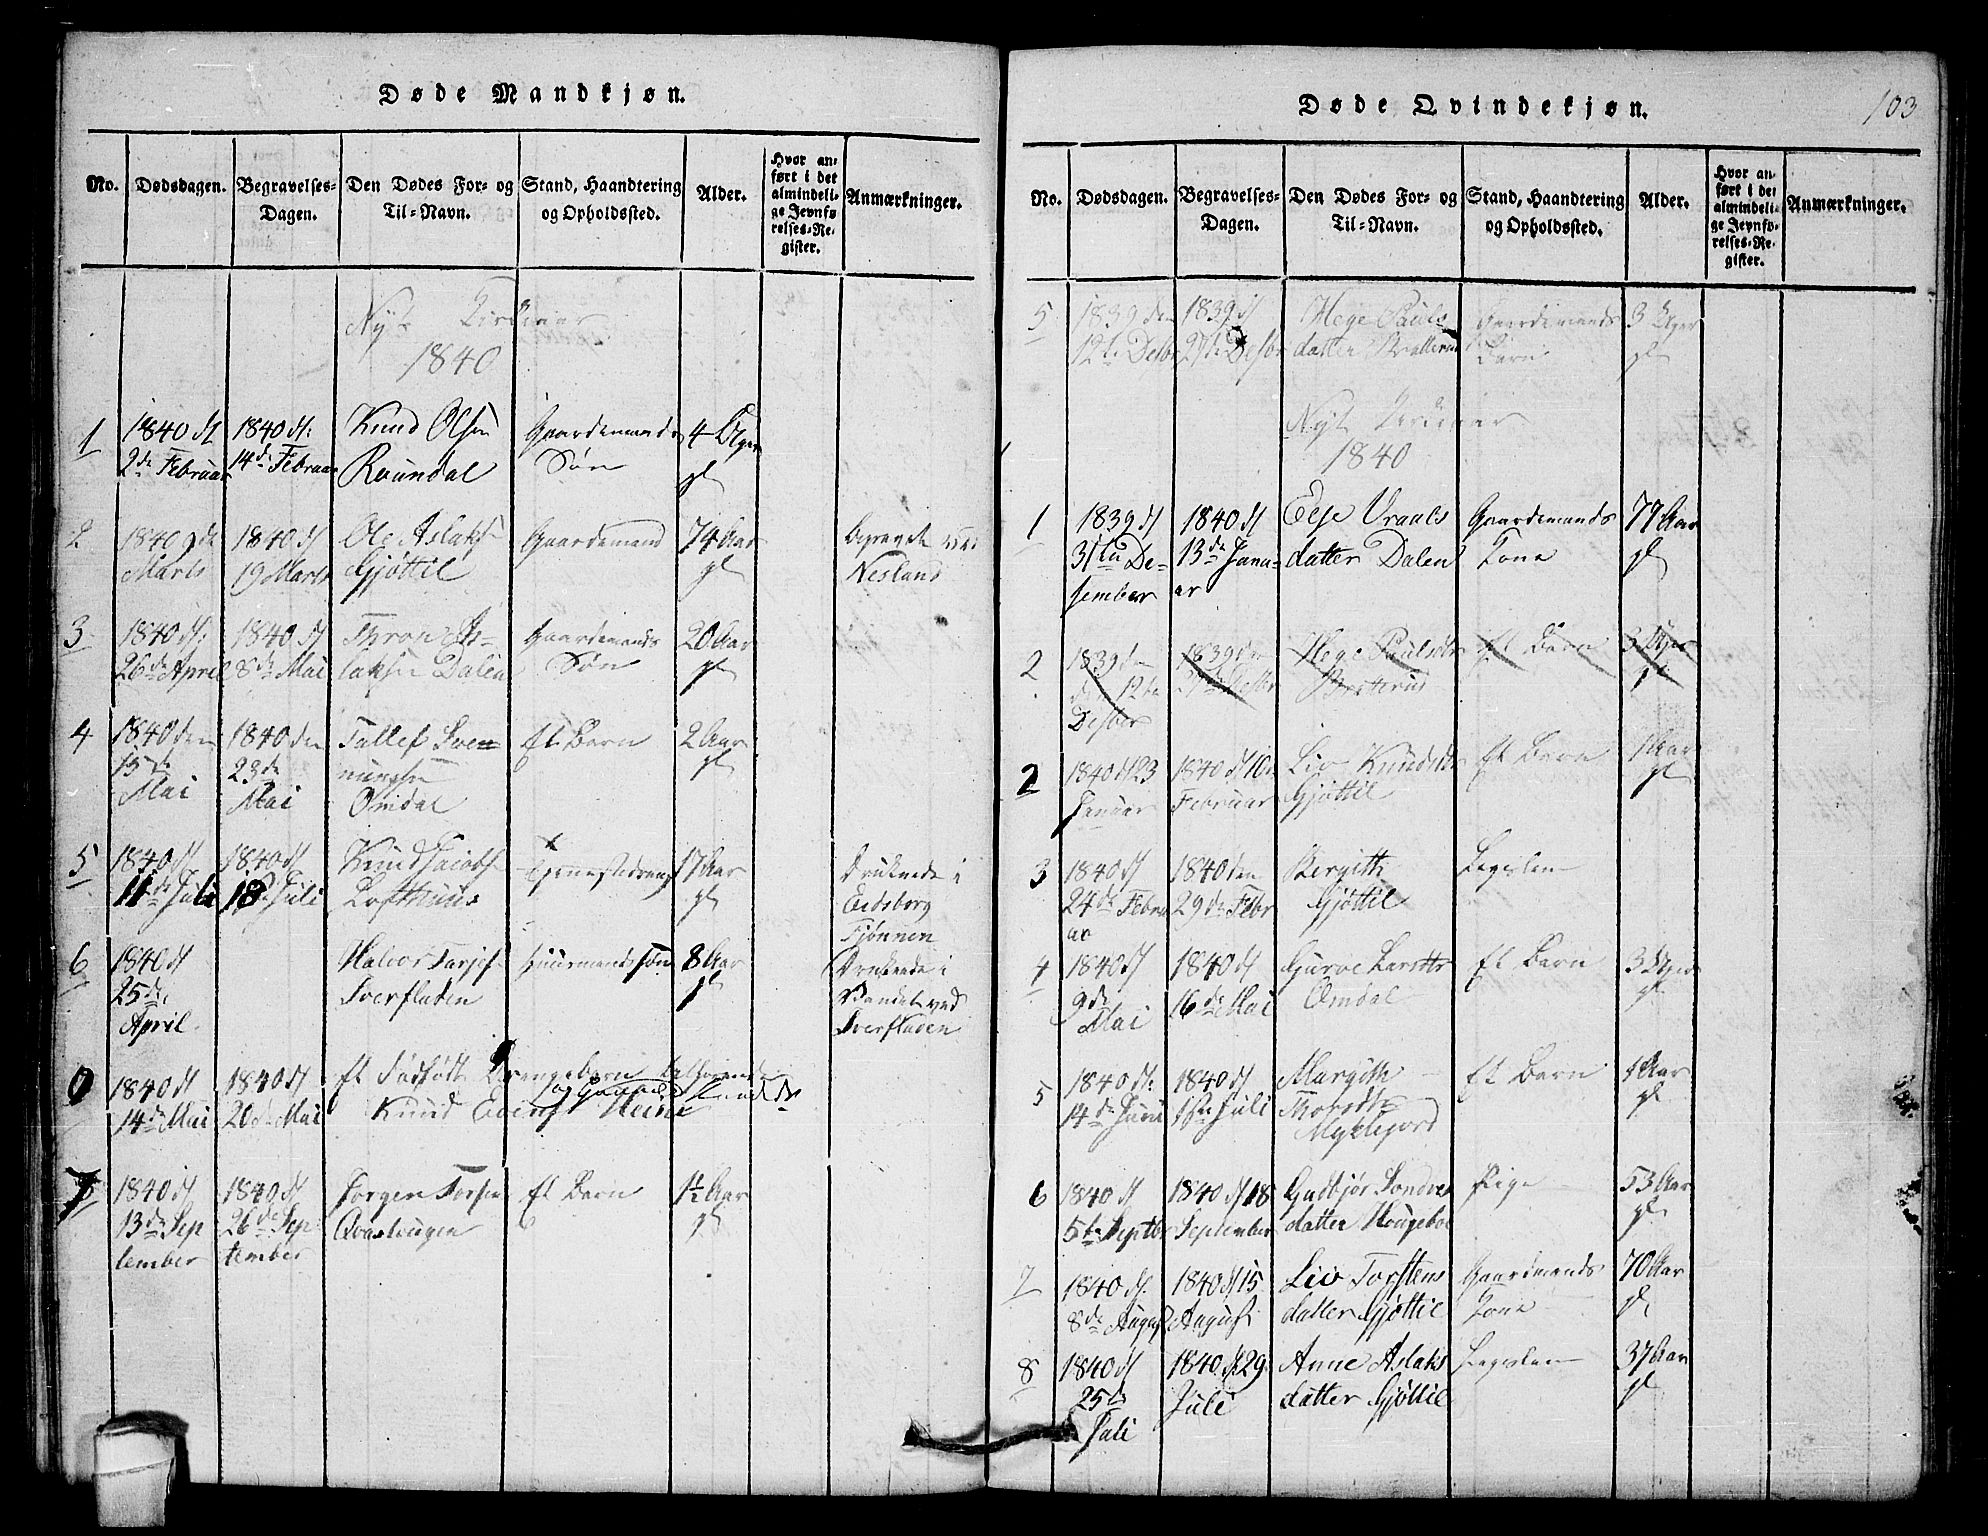 Døde Mandkjøn.
No.
Dødsdagen.
Begravelses-
Dagen.
Den Dødes For- og
Til-Navn.
Stand, Haandtering
og Opholdssted.
Alder.
Hvor an-
ført i det
almindeli-
ge Jevnfø-
relses-Re-
gister.
Anmærkninger.
Nyt Kirkeaar
1840
1
1840 d
2de Februar
1840 d:
14de Februar
Knud Olsen
Ravndal
Gaardemands
Søn
4 Uger
gl
2
1840 9de
Marts
1840 d
19 Marts
Ole Aslaks
Gjøttil
Gaardemand
74 Aar
gl
Begravet ved
Nesland
3
1840 d:
26de April
1840 d
8de Mai
Thron As-
laksen Dalen
Gaardemands
Søn
20 Aar
gl
4
1840 den
15de
Mai
1840 den
23de
Mai
Tallef Sven-
nungsen
Omdal
Et Barn
2 Aar
gl
5
1840 d
11de Juli
1840 d
18de Juli
Knud Jacobs
Lofthuus
Tjenestedreng
17 Aar
gl
Druknede i
Eidsborg
Tjønnen
6
1840 d
25de
April
Halvor Tarjes
Sverfladen
Huusmandssøn
8 Aar
gl
Druknede i
Vandet ved
Sverfladen
0
1840 d
14de Mai
1840 d
20de Mai
Et Dødfødt Drengebarn tilhørende
Knud Evens
7
1840 d
13de Sep
tember
1840 d
26de Sep
tember
Jørgen Torsen
Et Barn
1½ Aar
gl
Døde Qvindekjøn.
103
No.
Dødsdagen.
Begravelses-
Dagen.
Den Dødes For- og
Til-Navn.
Stand, Haandtering
og Opholdssted.
Alder.
Hvor an-
ført i det
almindeli-
ge Jevnfø-
relses-Re-
gister.
Anmærkninger.
5
1839 den
12te Desbr
1839 d
27de Desbr
Hege Pauls
datter
Gaardemands
Barn
3 Uger
gl
Nyt Kirkeaar
1840
1
1839 d
31te De-
sember
1840 d
13de Janu-
ar
Else Vraals
datter Dalen
Gaardemands
Kone
77 Aar
gl
2
1839 den
den 12te
Desber
1839 den
27de Desbr
Hege Paulsdtr
Et Barn
3 Uger
gl
2
1840 d 23
Januar
1840 d 10de
Februar
Liv Knudsdtr
Gjøttil
Et Barn
1 Aar
gl
3
1840 d
24de Febru
ar
1840 den
29de Febr
Bergith
Gjøttil
Legslem
4
1840 d
9de
Mai
1840 d
16de Mai
Guroe Larsdtr
Omdal
Et Barn
3 Uger
gl
5
1840 d:
14de Juni
1840 d
1ste Juli
Margith
Thorsdtr
Myklejord
Et Barn
1 Aar
gl
6
1840 d
5te Septbr
1840 d 18
September
Gudbjør Sondres
datter Hougeboe
Pige
53 Aar
gl
7
1840 d.
8de August
1840 d 15
August
Liv Torstens
datter Gjøttil
Gaardmands
Kone
70 Aar
gl
8
1840 d
25de
Juli
1840 d 29
Juli
Anne Aslaks
datter Gjøttil
Legslem
37 Aar
gl